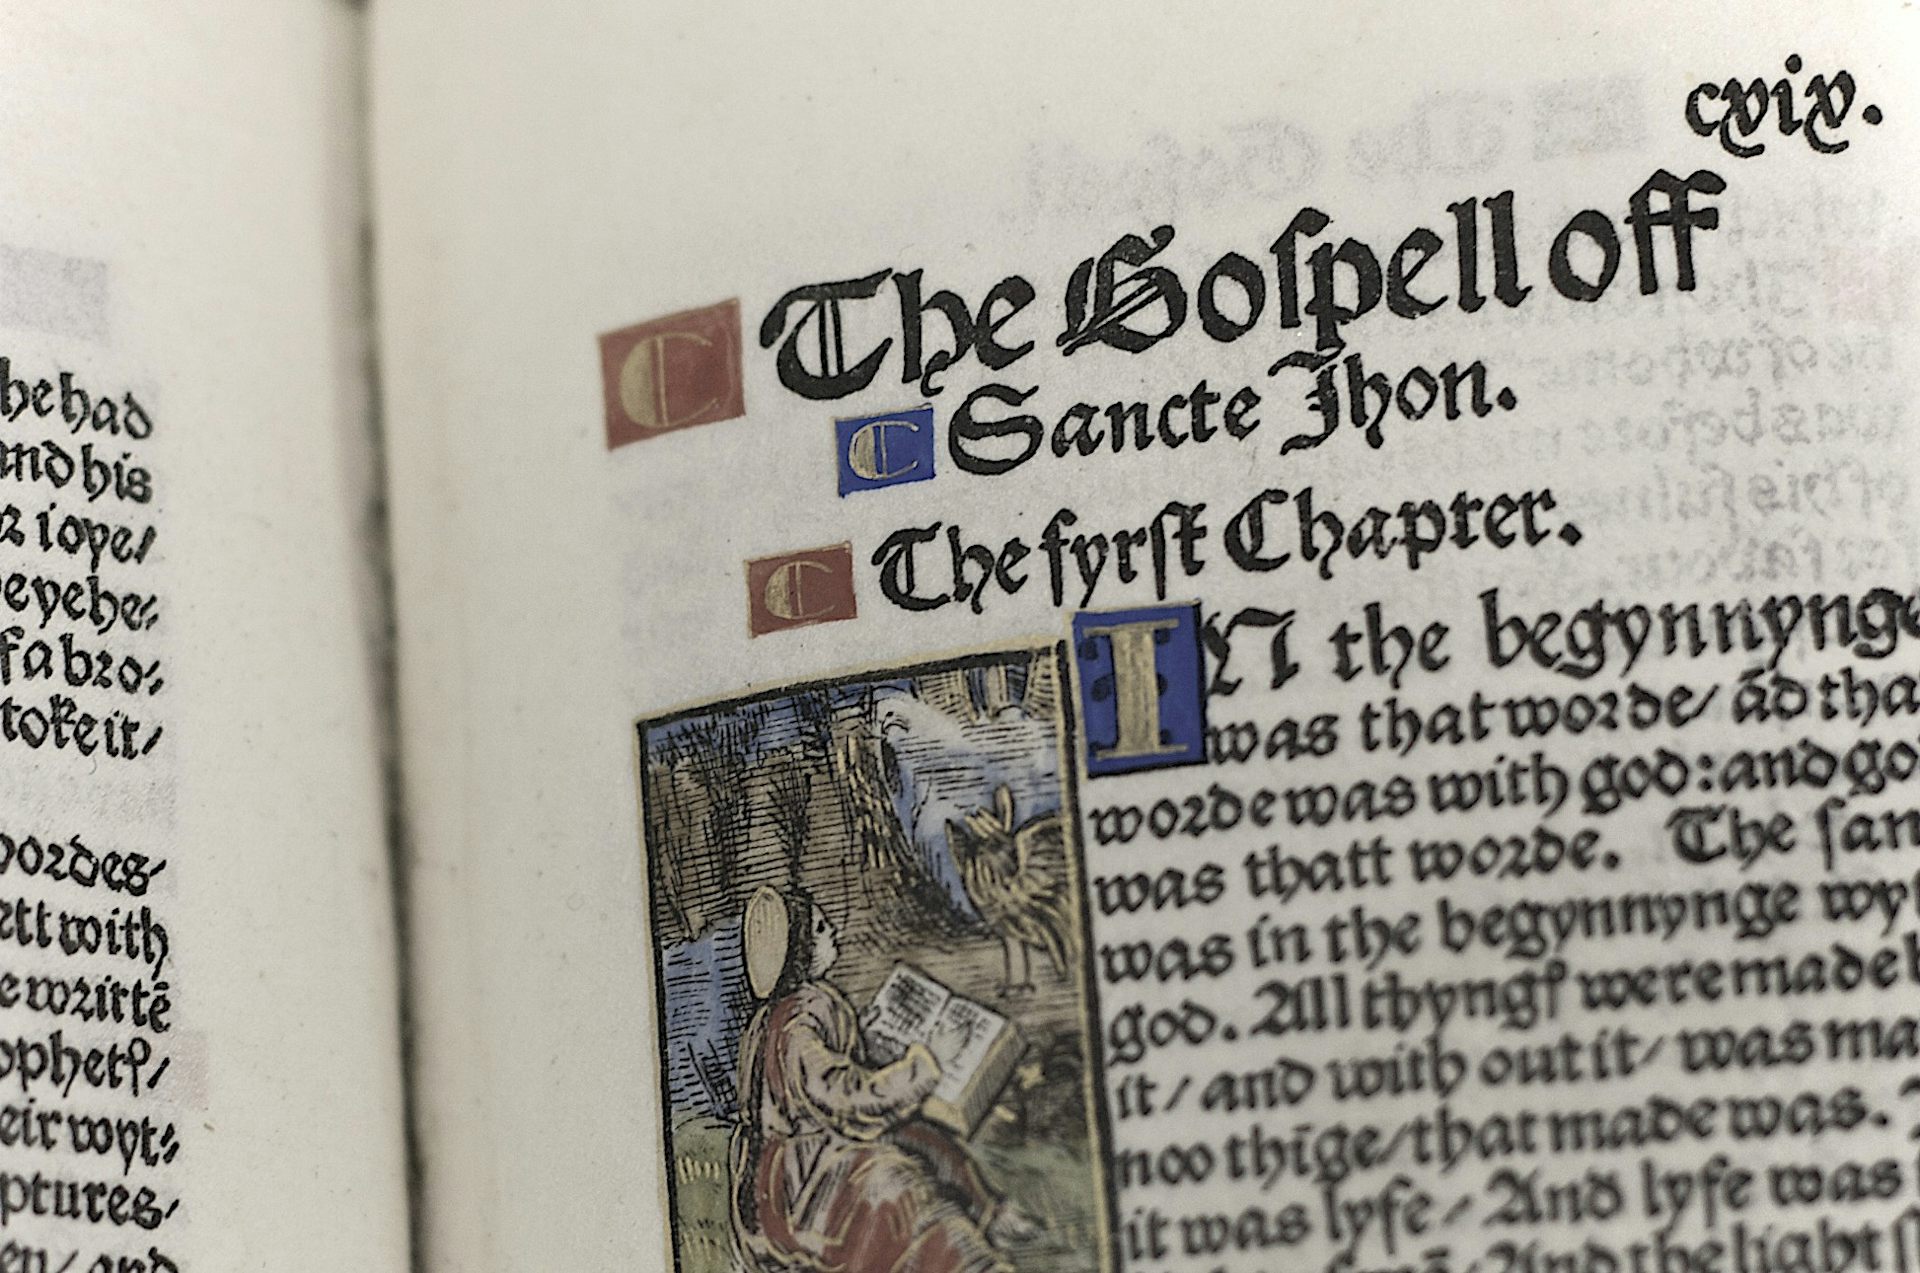 he had
and his
iope/
eyehe⸗
f a bro⸗
toke it/
wordes/
ett with
e writtē
ophetꝭ/
eir wyt⸗
ptures/
en/ and
cxix.
The Goſpell off
Sancte Jhon.
The fyrſt Chapter.
IN the begynnynge
was that worde/ ād tha
worde was with god: and go
was thatt worde. The ſam
was in the begynnynge wyt
god. All thyngꝭ were made b
it/ and with out it/ was ma
noo thīge/ that made was.
it was lyfe/ And lyfe was
And the light ſ